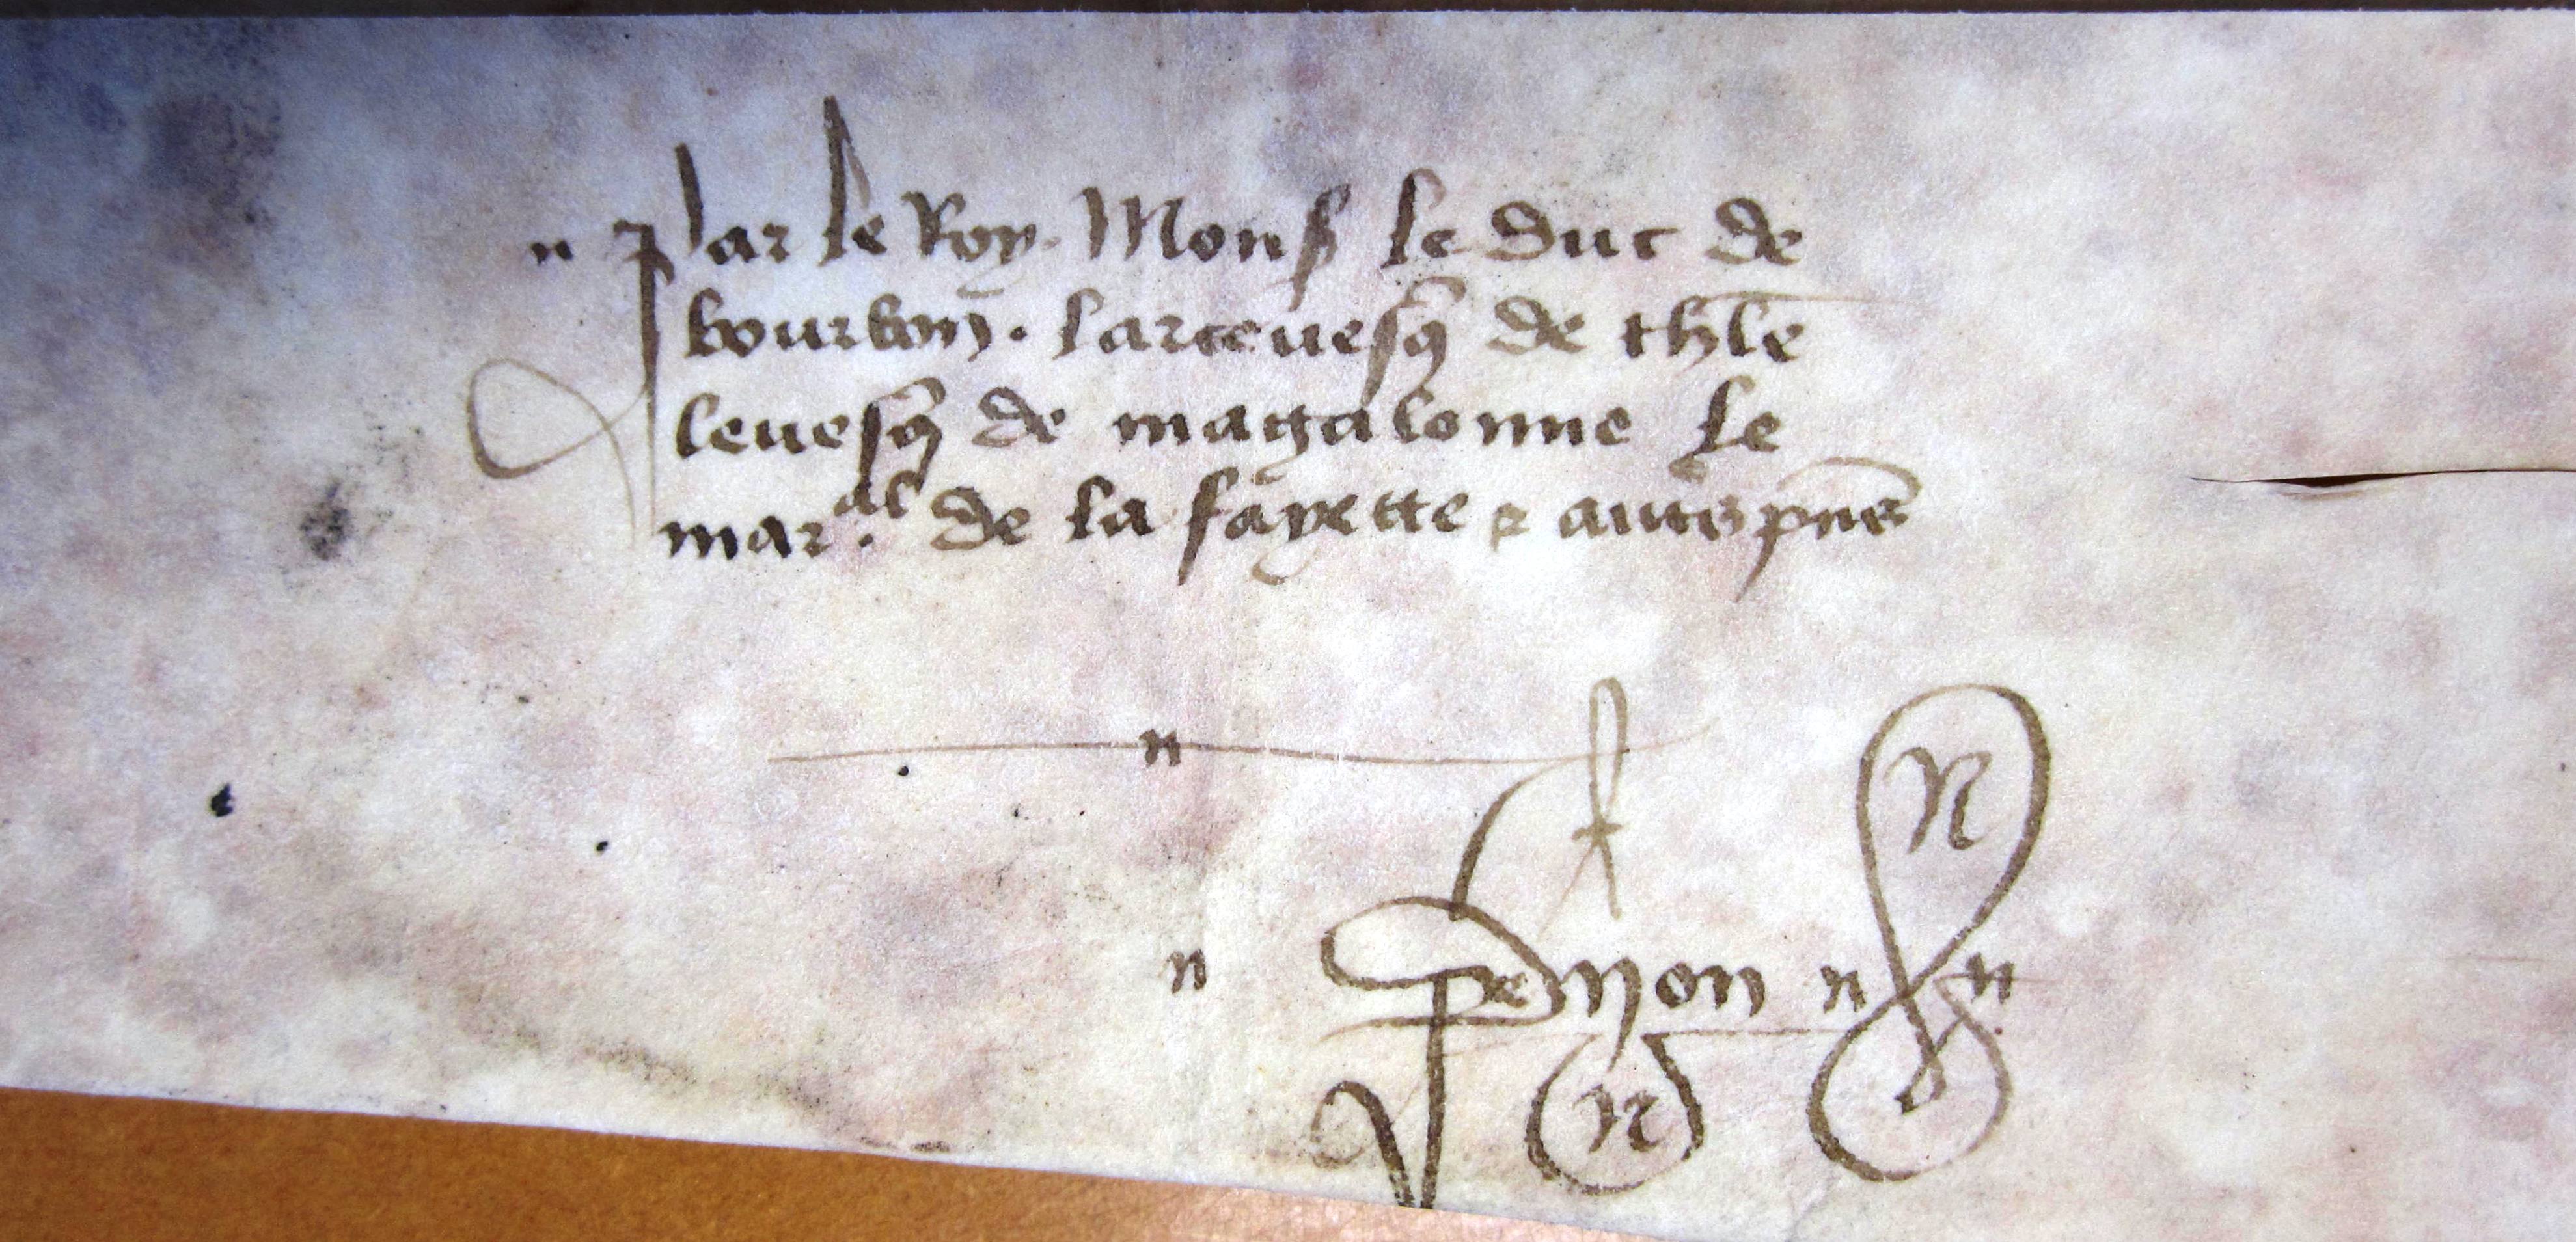 Par le Roy. Mons le duc de
bourbon. larcevesq de thle
levesq de magalonne le
mar.al de la fayette & autres pns